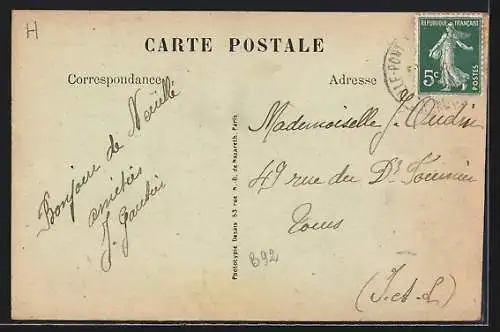 H
CARTE POSTALE
Correspondance
Adresse
REPUBLIQUE FRANÇAISE
5c
POSTES
Bonjour de Noëllé
amitiés
J. Gautier
Mademoiselle J. Oudin
49 rue du Dr Fournier
Tours
(I. et. L.)
Phototypie Desaix 53 rue N.-D. de Nazareth, Paris
B92